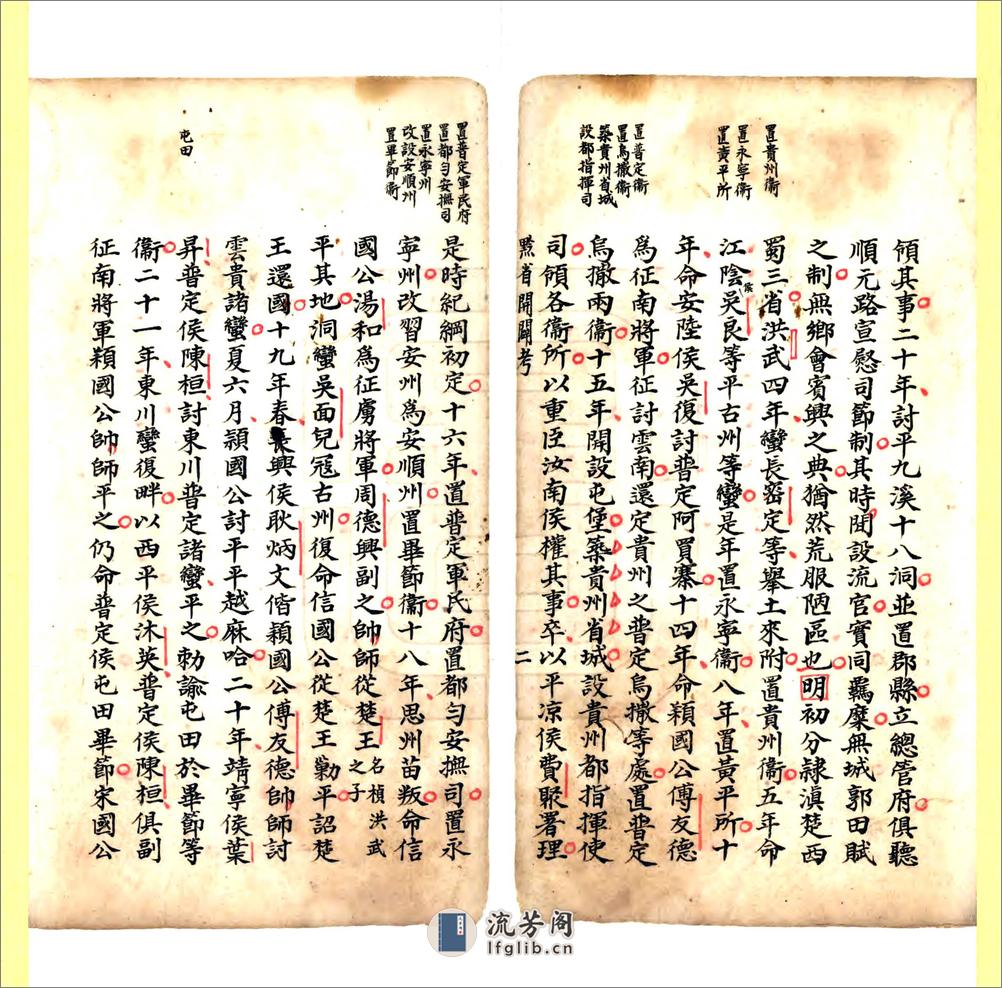 置貴州衞
置永寧衞
置黄平所
置普定衞
置烏撒衞
築貴州省城
設都指揮司
領其事二十年討平九溪十八洞並置郡縣立總管府俱聽
順元路宣慰司節制其時開設流官實同羈縻無城郭田賦
之制無鄉會賓興之典猶然荒服陋區也明初分隸滇楚西
蜀三省洪武四年蠻長密定等舉土來附置貴州衞五年命
江陰侯吳良等平古州等蠻是年置永寧衞八年置黃平所十
年命安陸侯吳復討普定阿買寨十四年命穎國公傅友德
爲征南將軍征討雲南還定貴州之普定烏撒等處置普定
烏撒兩衞十五年開設屯堡築貴州省城設貴州都指揮使
司領各衞所以重臣汝南侯權其事卒以平凉侯費聚署理
黔省開闢考 二
置普定軍民府
置都勻安撫司
置永寧州
改設安順州
置畢節衞
屯田
是時紀綱初定十六年置普定軍民府置都勻安撫司置永
寧州改習安州爲安順州置畢節衞十八年思州苗叛命信
國公湯和爲征虜將軍周德興副之帥師從楚王名楨洪武之子
平其地洞蠻吳面兒寇古州復命信國公從楚王勦平詔楚
王還國十九年春長興侯耿炳文偕穎國公傅友德帥師討
雲貴諸蠻夏六月穎國公討平平越麻哈二十年靖寧侯葉
昇普定侯陳桓討東川普定諸蠻平之勅諭屯田於畢節等
衞二十一年東川蠻復畔以西平侯沐英普定侯陳桓俱副
征南將軍穎國公帥師平之仍命普定侯屯田畢節宋國公
流芳阁
lfglib.cn